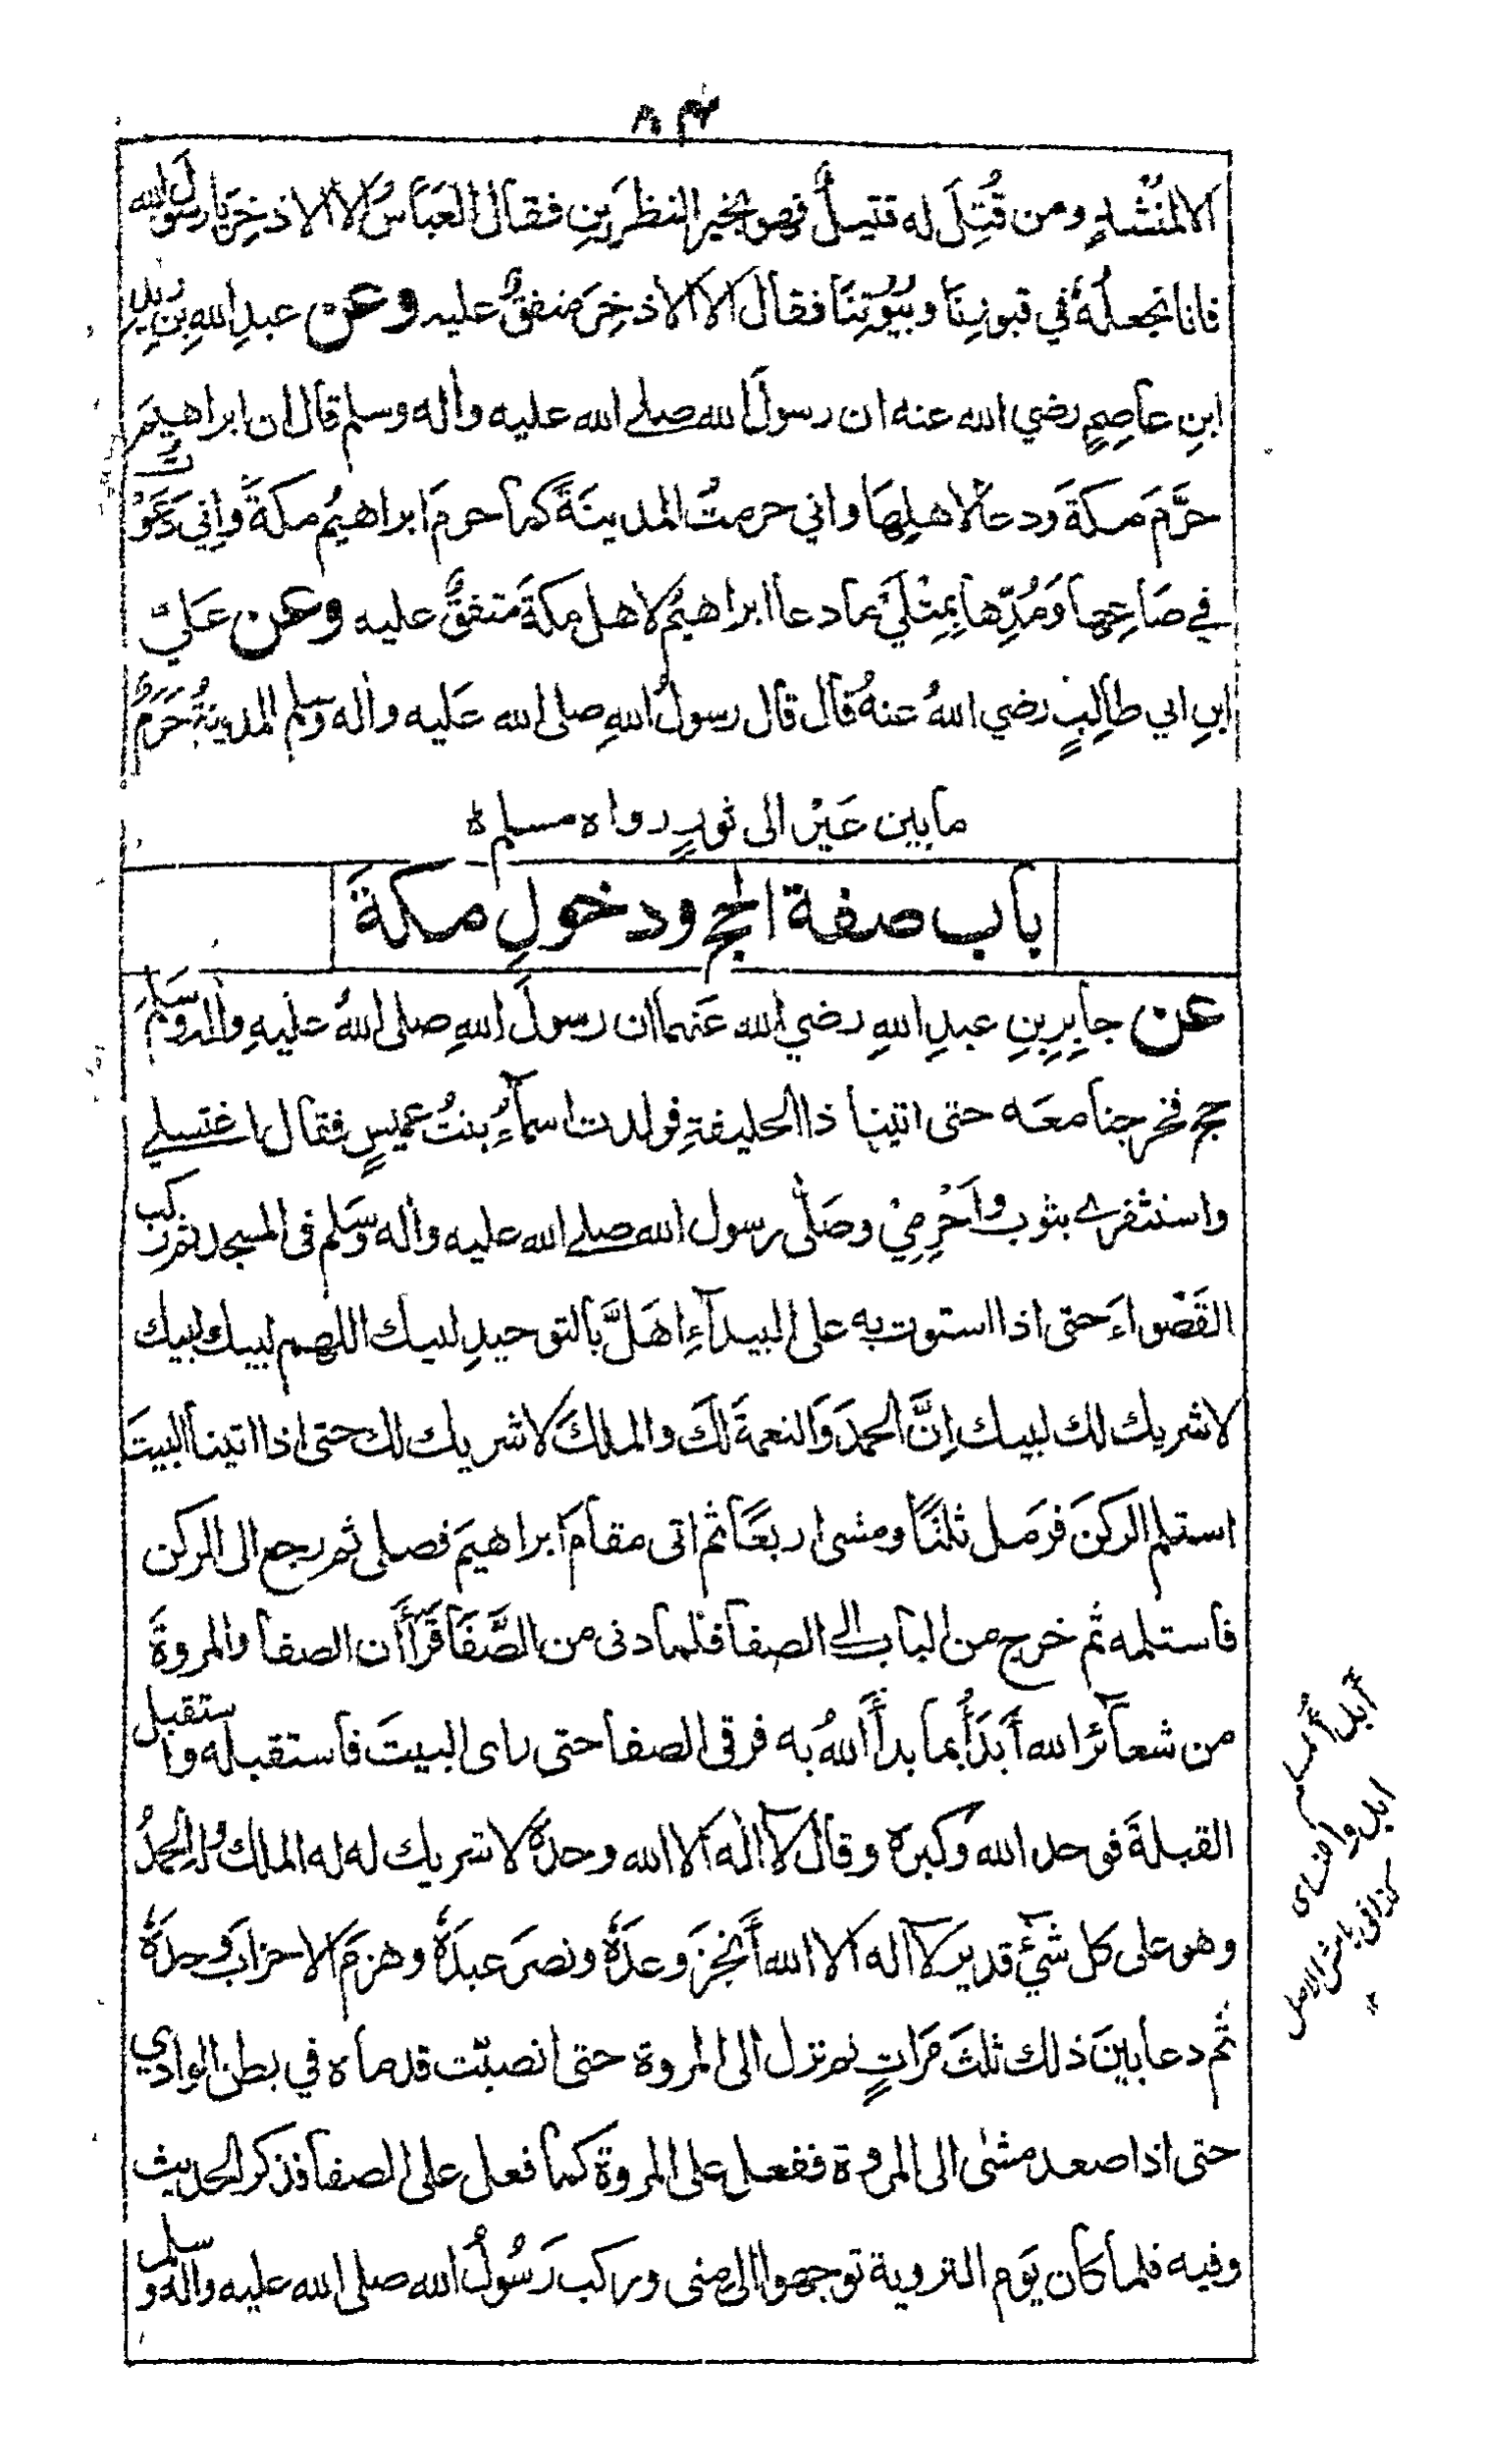 الا لمُنْشِدٍ ومن قُتِلَ له قتيلٌ فهو بخير النظرَينِ فقال العَبّاسُ الا الاذخِرَ يا رسولَ الله
فانا نجعلُهُ في قبورِنَا وبُيُوتِنَا فقال الا الاذخِرَ متفقٌ عليه وعن عبدِ اللهِ بنِ زيدِ
ابنِ عاصِمٍ رضي الله عنه ان رسولَ الله صلى الله عليه وأله وسلم قال ان ابراهيمَ
حرَّمَ مكةَ ودعا لاهلِهَا واني حرمتُ المدينَةَ كما حرم ابراهيمُ مكةَ وإني دَعَوْتُ
في صَاعِها ومُدِّها بمِثْلَيْ ما دعا ابراهيمُ لاهل مكةَ متفقٌ عليه وعن عَليِّ
ابنِ ابي طالِبٍ رضي اللهُ عنهُ قال قال رسولُ اللهِ صلى الله عَليه وأله وسلم المدينةُ حَرَمٌ
ما بين عَيْرٍ الى ثورٍ رواه مسلم ٥
باب صفة الحج ودخولِ مكةَ
عن جابِرِ بنِ عبدِ اللهِ رضي الله عَنهما ان رسولَ اللهِ صلى اللهُ عليهِ وأله وسلم
حج فخرجنا معَه حتى اتينا ذا الحليفةِ فولدت اسماءُ بنتُ عميسٍ فقال اغتسلي
واستثفرے بثوب وأَحْرِمِيْ وصَلّى رسول الله صلے الله عليه وأله وسَلم في المسجد ثم ركب
القَصْواءَ حتى اذا استوت به على البيدآءِ اهَلَّ بالتوحيدِ لبيك اللهم لبيك لبيك
لا شريك لك لبيك اِنَّ الحمدَ والنعمةَ لكَ والملكَ لا شريك لك حتى اذا اتينا البيتَ
استلم الركنَ فرمَل ثلثًا ومشى اربعًا ثم اتى مقامَ ابراهيمَ فصلى ثم رجع الى الركن
فاستلمه ثم خرج من الباب الى الصفا فلما دنى من الصَّفَا قَرَأَ أَن الصفا والمروةَ
من شعآئر الله أَبدَأُ بما بدأَ اللهُ به فرقى الصفا حتى راى البيتَ فاستقبله واستقبل
القبلةَ فوحد الله وكبره وقال لآ اله الا الله وحدهُ لا شريك له له الملك وله الحمدُ
وهو على كل شيْءٍ قدير لآ اله الا الله أَنجزَ وعدَهُ ونصرَ عبدَهُ وهزمَ الاحزابَ وحدَهُ
ثم دعا بينَ ذلك ثلثَ مَراتٍ ثم نزل الى المروة حتى انصبّت قدماه في بطن الوادي
حتى اذا صعد مشى الى المروة ففعل على المروة كما فعل على الصفا فذكر الحديث
وفيه فلما كان يَوم التروية توجهوا الى منى وركب رَسُولُ الله صلى الله عليه واله وسلم
ابدأ
ابدوا
كذا في هامش الاصل